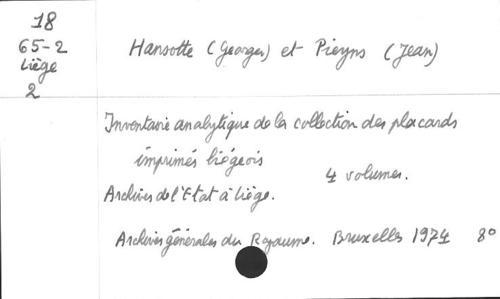 18
65-2
Liège
2
Hansotte (Georges) et Pieyns (Jean)
Inventaire analytique de la collection des placards
imprimés liégeois
4 volumes.
Archives de l'Etat à Liège.
Archives générales du Royaume. Bruxelles 1974 8°